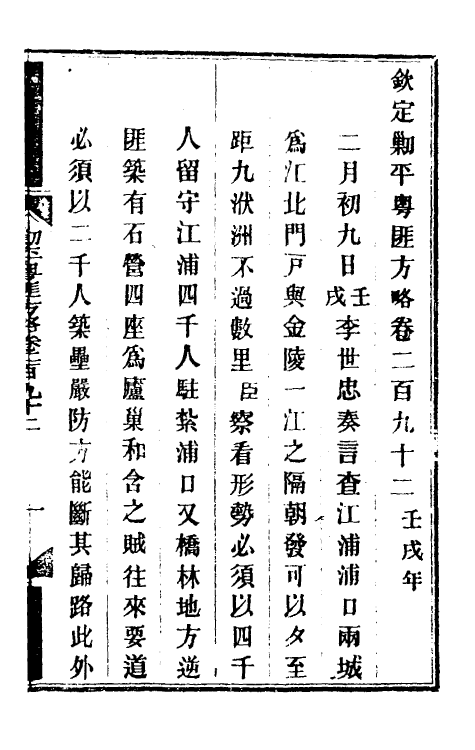 欽定剿平粵匪方略卷二百九十二 壬戌年
二月初九日壬戌李世忠奏言查江浦浦口兩城
爲江北門戶與金陵一江之隔朝發可以夕至
距九洑洲不過數里臣察看形勢必須以四千
人留守江浦四千人駐紮浦口又橋林地方逆
匪築有石營四座爲廬巢和含之賊往來要道
必須以二千人築壘嚴防方能斷其歸路此外
卷二百九十二
一